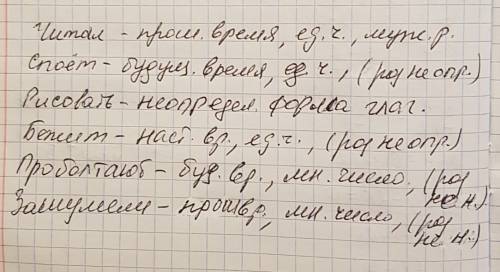 Читал - прош. время, ед.ч., муж.р.
Споёт - будущ. время, ед.ч., (род неопр.)
Рисовать - неопредел. форма глаг.
Бежит - наст. вр., ед.ч., (род неопр.)
Проболтают - буд. вр., мн. число, (род не н.)
Зашумели - прош вр., мн. число, (род не н.)